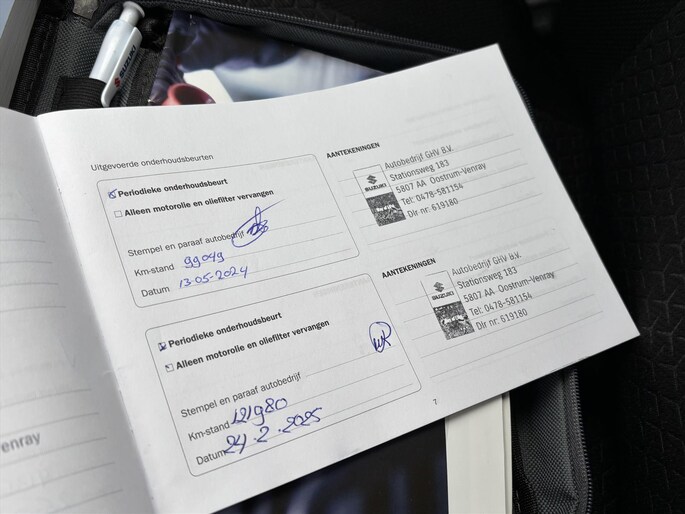 SUZUKI
Uitgevoerde onderhoudsbeurten
Periodieke onderhoudsbeurt
Alleen motorolie en oliefilter vervangen
Stempel en paraaf autobedrijf
Km-stand 99049
Datum 13-05-2024
AANTEKENINGEN
SUZUKI
Autobedrijf GHV B.V.
Stationsweg 183
5807 AA Oostrum-Venray
Tel: 0478-581154
Dlr nr: 619180
Periodieke onderhoudsbeurt
Alleen motorolie en oliefilter vervangen
Stempel en paraaf autobedrijf
Km-stand 121980
Datum 24-2-2025
AANTEKENINGEN
SUZUKI
Autobedrijf GHV B.V.
Stationsweg 183
5807 AA Oostrum-Venray
Tel: 0478-581154
Dlr nr: 619180
7
enray